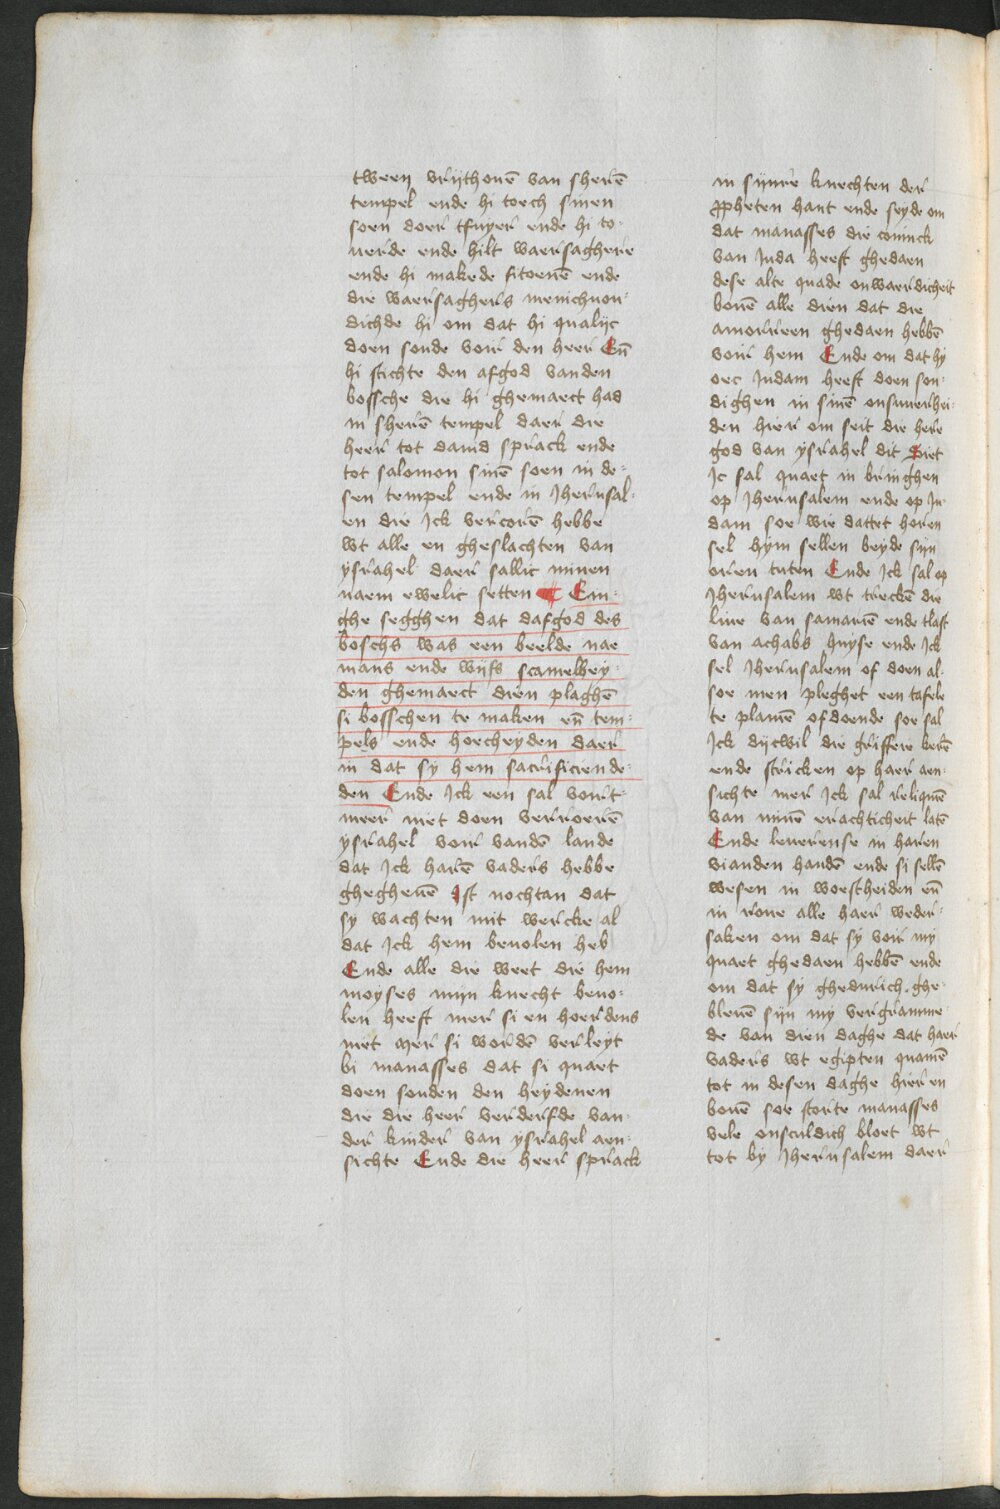 tween vrijthouē van sherē
tempel ende hi toech sinen
soen doer tfuyer ende hi to-
uerde ende hilt waersaghere
ende hi makede fitoenē ende
die waersaghers menichuou-
dichde hi om dat hi qualijc
doen soude voir den heer Eñ
hi stichte den afgod vanden
bossche die hi ghemaect had
in sherē tempel daer die
heer tot dauid sprack ende
tot salomon sinē soen in de-
sen tempel ende in Jherusal-
en die Jck vercorē hebbe
wt alle en gheslachten van
ysrahel daer sallic minen
naem ewelic setten Eni-
ghe segghen dat dafgod des
boschs was een beelde nae
mans ende wijfs scamelhey-
den ghemaect dien plaghē
si bosschen te maken eñ tem-
pels ende hoecheyden daer
in dat sy hem sacrificien de-
den Ende Jck een sal voirt-
meer niet doen verroerē
ysrahel voir vandē lande
dat Jck harē vaders hebbe
ghegheuē Jst nochtan dat
sy wachten mit wercke al
dat Jck hem beuolen heb
Ende alle die weet die hem
moyses mijn knecht beuo-
len heeft mer si en hoerdens
niet mer si wordē verleyt
bi manasses dat si quaet
doen souden den heydenen
die die heer verderfde van
der kinder van ysrahel aen-
sichte Ende die heer sprack
in sijnre knechten der
ꝓpheten hant ende seyde om
dat manasses die coninck
van Juda heeft ghedaen
dese alte quade onwaerdicheit
bouē alle dien dat die
amorreen ghedaen hebbē
voir hem Ende om dat hy
oec Judam heeft doen son-
dighen in sinē onsuuerhei-
den hier om seit die here
god van ysrahel dit Siet
Jc sal quaet in bringhen
op Jherusalem ende op Ju-
dam soe wie dattet horen
sel hym sellen beyde sijn
oren tuten Ende Jck sal op
Jherusalem wt treckē die
linie van samariē ende tlast
van achabs huyse ende Jck
sel Jherusalem of doen al-
soe men pleghet een tafele
te planiē of doende soe sal
Jck dijcwil die griffiere kerē
ende stricken op haer aen-
sichte mer Jck sal reliquiē
van minē erachticheit latē
Ende leuerense in haren
vianden handē ende si sellē
wesen in woestheiden eñ
in roue alle haer weder-
saken om dat sy voir mij
quaet ghedaen hebbē ende
om dat sy ghedurich ghe-
bleuē sijn mij vergramme-
de van dien daghe dat haer
vaders wt egipten quamē
tot in desen daghe hier en
bouē soe storte manasses
vele onsculdich bloet wt
tot by Jherusalem daer